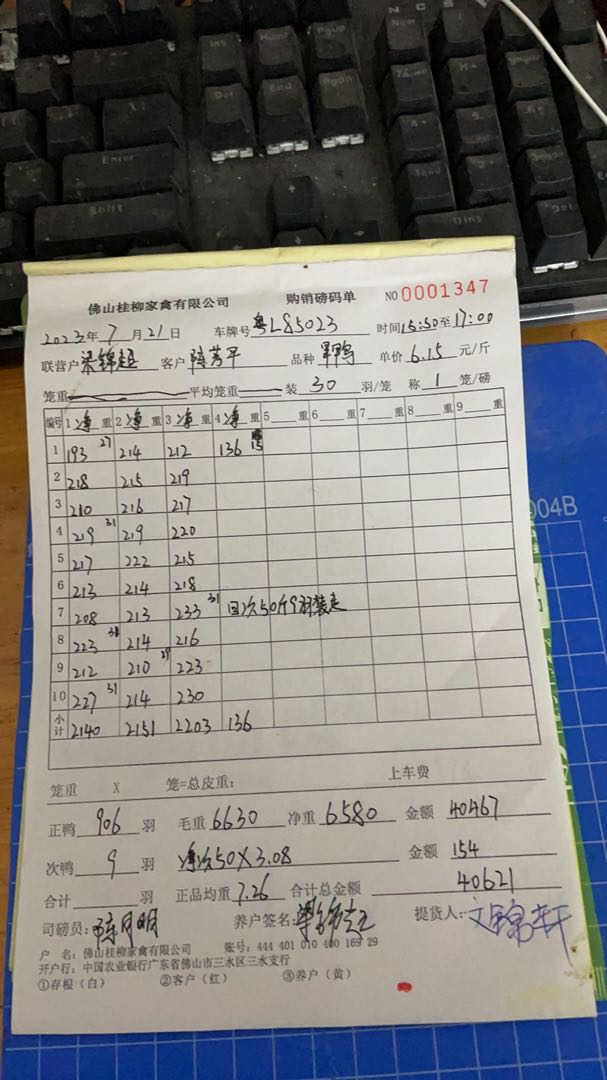 佛山桂柳家禽有限公司 购销磅码单 NO 0001347
2023年 7 月 21 日 车牌号 粤L85023 时间 15:50 至 17:00
联营户 梁锦超 客户 陈芳平 品种 单价 6.15 元/斤
笼重 平均笼重 装 30 羽/笼 称 1 笼/磅
编号 1 净 重 2 净 重 3 净 重 4 净 重 5 重 6 重 7 重 8 重 9 重
1 193 27 214 212 136 15
2 218 215 219
3 210 216 217
4 219 31 219 220
5 217 222 215
6 213 214 218
7 208 213 233 31 回次50斤9羽装走
8 223 214 216
9 212 210 29 223
10 227 31 214 230
小计 2140 2151 2203 136
笼重 X 笼=总皮重: 上车费
正鸭 906 羽 毛重 6630 净重 6580 金额 40467
次鸭 9 羽 净次50X3.08 金额 154
合计 羽 正品均重 7.26 合计总金额 40621
司磅员: 陈月明 养户签名: 提货人:
户 名: 佛山桂柳家禽有限公司 账号: 444 401 010 400 169 29
开户行: 中国农业银行广东省佛山市三水区三水支行
①存根(白) ②客户(红) ③养户(黄)